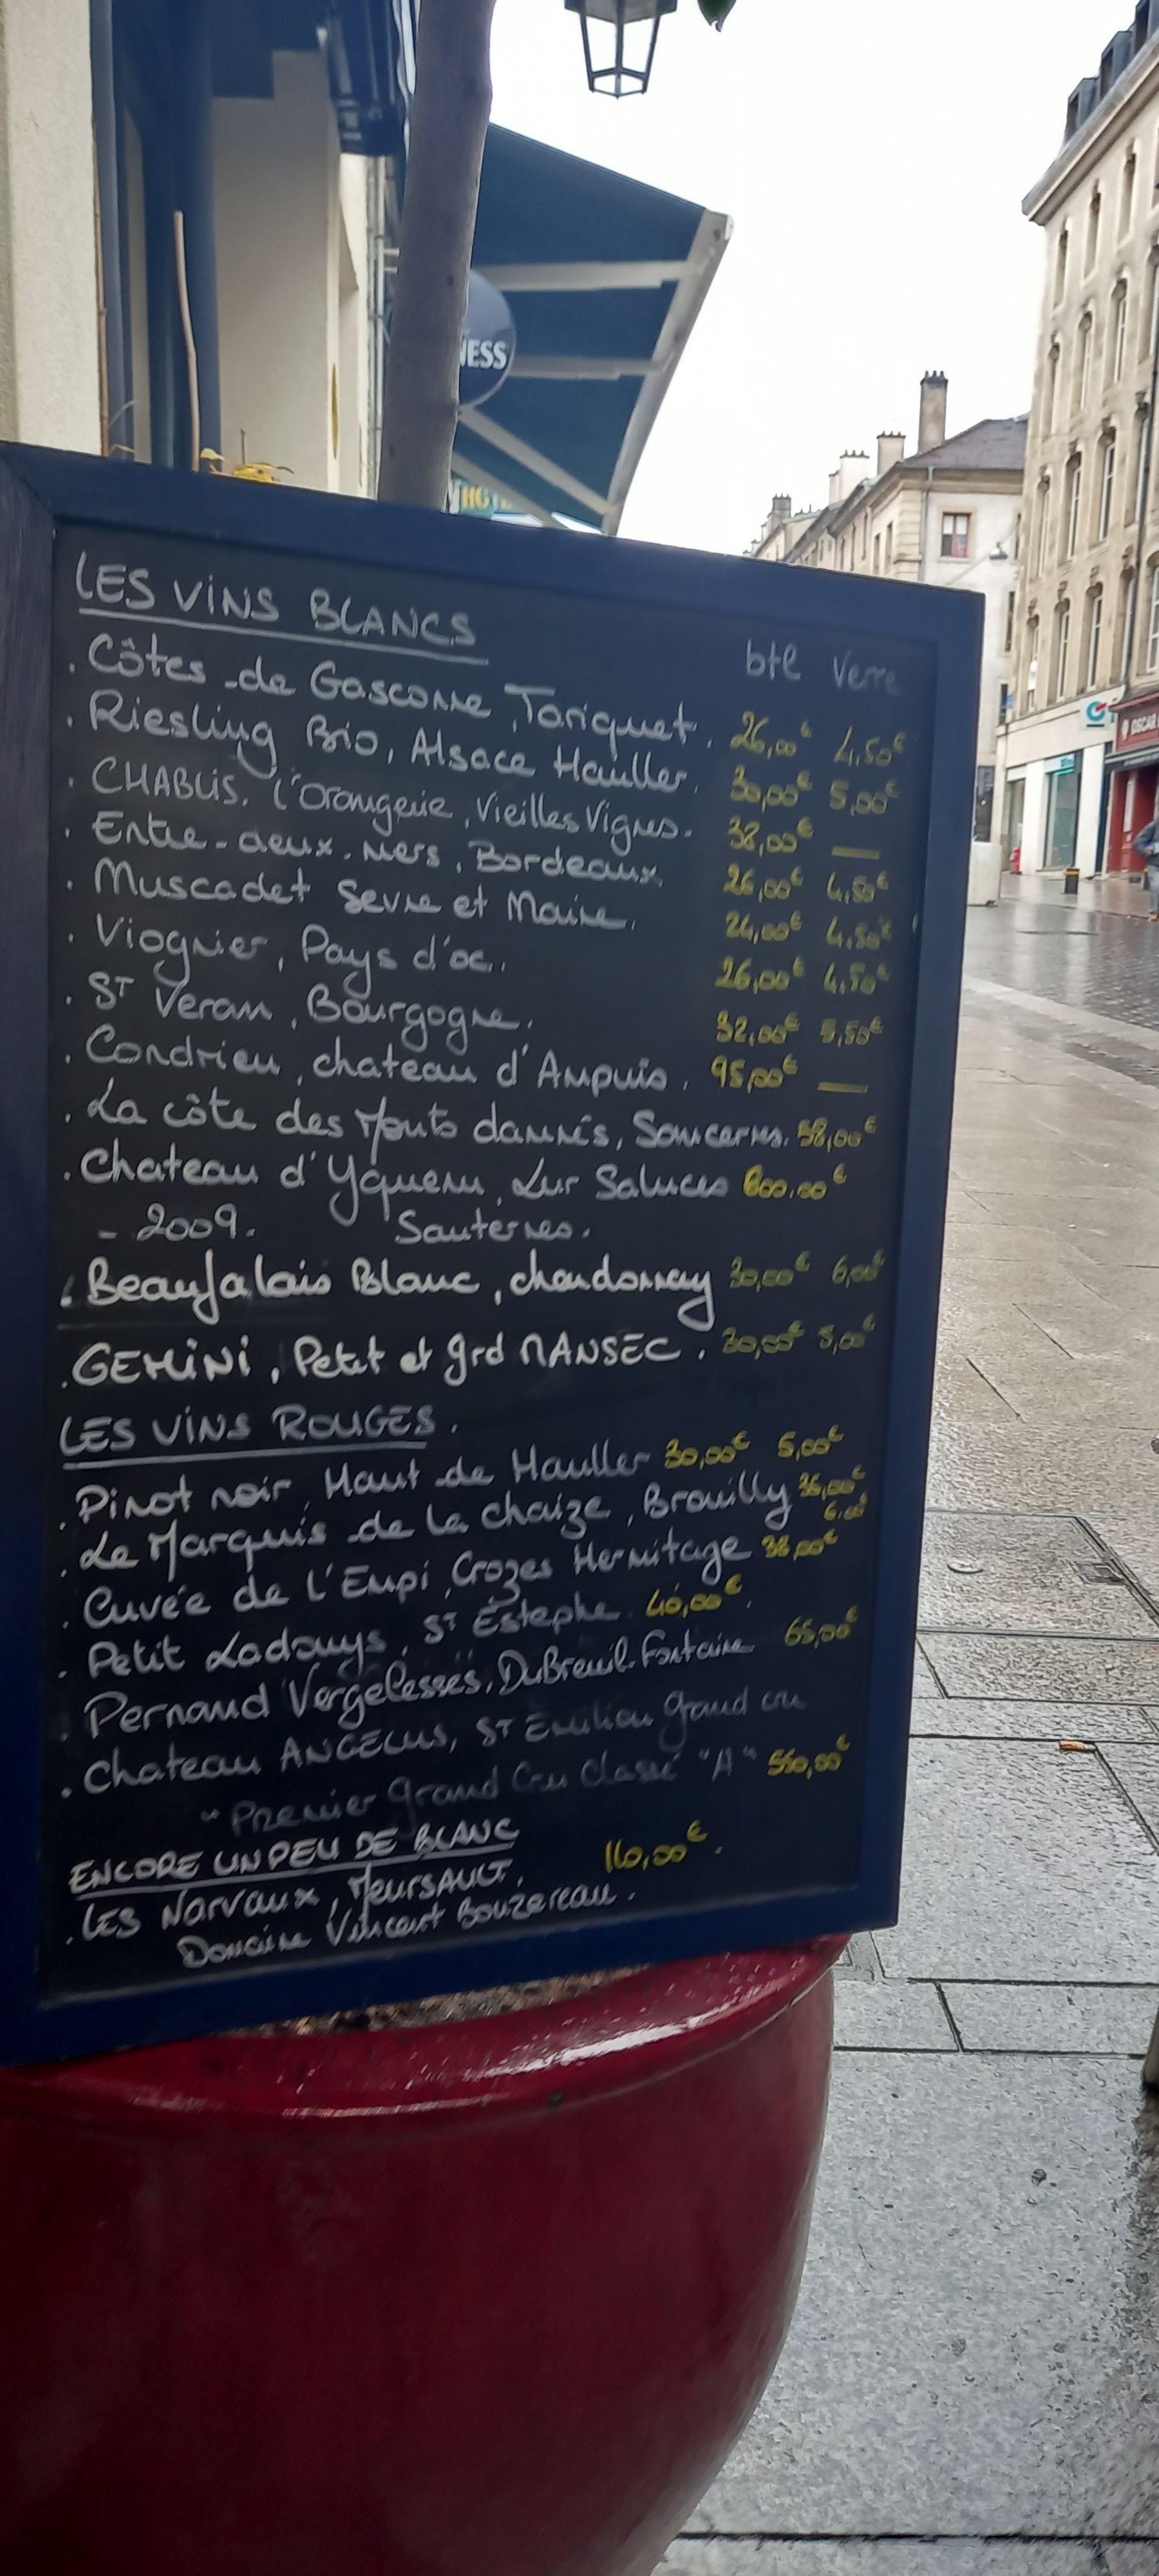 NESS
HOT
OSCAR
LES VINS BLANCS
btl Verre
. Côtes de Gascogne, Tariquet. 26,00€ 4,50€
. Riesling Bio, Alsace Hauller. 30,00€ 5,00€
. CHABLIS, l'Orangerie, Vieilles Vignes. 38,00€ —
. Entre-deux-mers, Bordeaux, 26,00€ 4,50€
. Muscadet Sevre et Maine. 24,00€ 4,50€
. Viognier, Pays d'oc. 26,00€ 4,50€
. ST Veran, Bourgogne. 32,00€ 5,50€
. Condrieu, chateau d'Ampuis. 95,00€ —
. La côte des Monts damnés, Sancerre. 58,00€
. Chateau d'Yquem, Lur Saluces 600.00€
- 2009. Sauternes.
. Beaujalais Blanc, chardonnay 30,00€ 6,00€
. GEMINI, Petit et grd MANSEC. 30,00€ 5,00€
LES VINS ROUGES.
. Pinot noir, Haut de Hauller 30,00€ 5,00€
. Le Marquis de la chaize, Brouilly 36,00€
6.00€
. Cuvée de l'Empi, Crozes Hermitage 38,00€
. Petit Ladouys, ST Estephe. 40,00€.
. Pernand Vergelesses, DuBreuil-Fontaine 65,00€
. chateau ANGELUS, ST Emilion Grand cru
"Premier Grand Cru Classé "A" 550,00€
ENCORE UN PEU DE BLANC
. LES Narvaux, MEURSAULT. 110,00€.
Domaine Vincent Bouzereau.